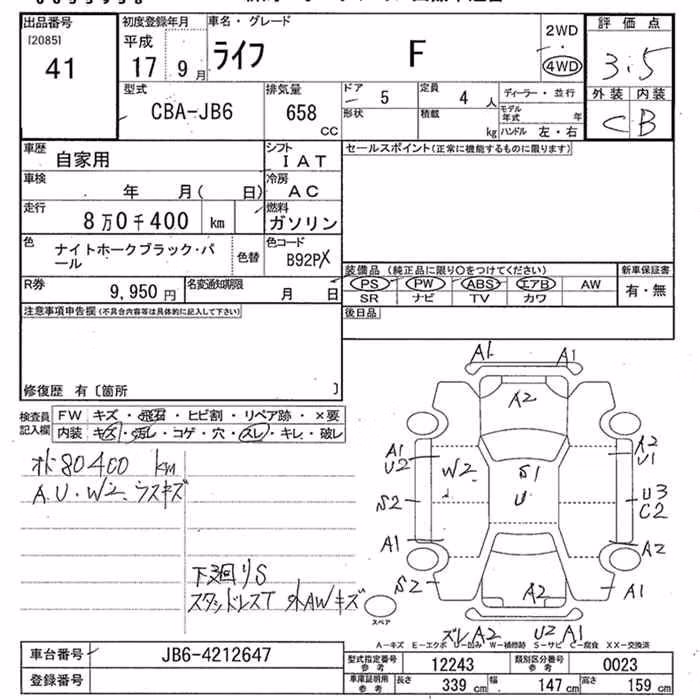 出品番号
[2085]
41
初度登録年月
平成
17 9月
車名・グレード
ライフ F
2WD
4WD
評価点
3.5
外装 内装
C B
型式
CBA-JB6
排気量
658 CC
ドア
5
定員
4 人
形状
積載
kg
ディーラー・並行
モデル年式 年
ハンドル 左・右
車歴
自家用
シフト
IAT
車検
年 月( 日)
冷房
AC
走行
8万0千400 km
燃料
ガソリン
色
ナイトホークブラック・パール
色替
色コード
B92PX
R券
9,950円
名変通知期限
月 日
セールスポイント(正常に機能するものに限ります)
装備品 (純正品に限り○をつけてください)
PS PW ABS エアB AW
SR ナビ TV カワ
新車保証書
有・無
後日品
注意事項申告欄(不具合内容等は具体的に記入して下さい)
修復歴 有〔箇所 〕
検査員記入欄
FW キズ・飛石・ヒビ割・リペア跡・×要
内装 キズ・汚レ・コゲ・穴・スレ・キレ・破レ
オド80400 km
A.U.W2. ウスキズ
下廻りS
スタッドレスT 外AWキズ
A1 A1
A2
A1
U2
W2
S1
U
A2
U1
S2
U3
C2
A1
A2
S2
A2
A1
スペア
ズレA2 U2 A1
A―キズ E―エクボ U―凹み W―補修跡 S―サビ C―腐食 XX―交換済
車台番号
JB6-4212647
登録番号
型式指定番号 参考
12243
類別区分番号 参考
0023
車庫証明用 参考
長さ 339 cm
幅 147 cm
高さ 159 cm